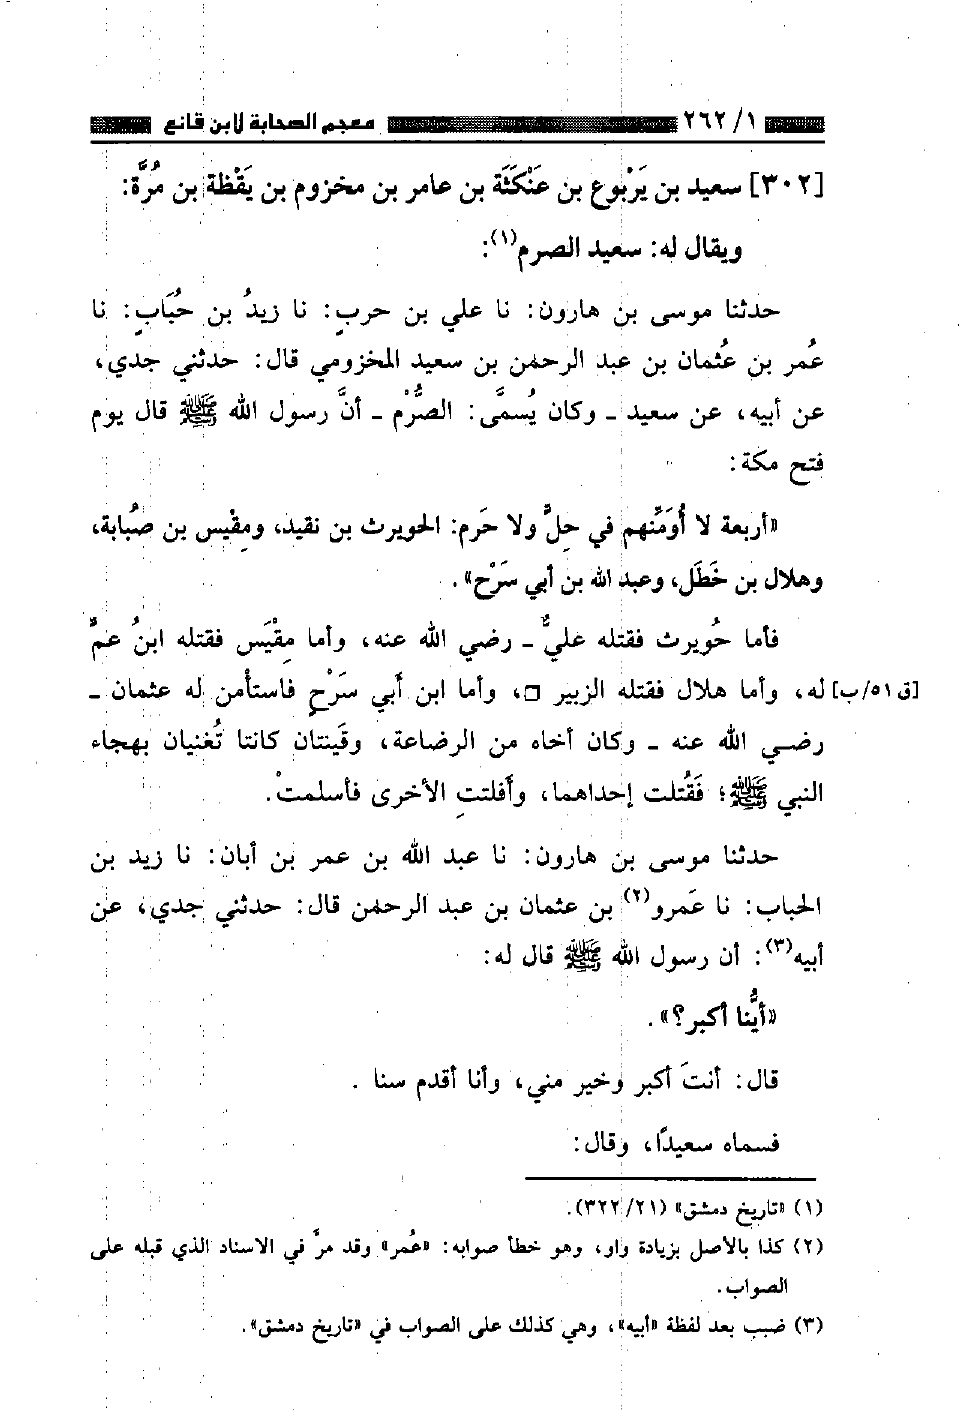 ١/ ٢٦٢ معجم الصحابة لابن قانع
[٣٠٢] سعيد بن يَرْبُوع بن عَنْكَثَة بن عامر بن مخزوم بن يَقْظة بن مُرَّة:
ويقال له: سعيد الصرم(١):
حدثنا موسى بن هارون: نا علي بن حربٍ: نا زيدُ بن حُبَابٍ: نا
عُمر بن عُثمان بن عبد الرحمٰن بن سعيد المخزومي قال: حدثني جدي،
عن أبيه، عن سعيد ـ وكان يُسمَّى: الصُّرْم ـ أنَّ رسول الله ﷺ قال يوم
فتح مكة:
«أربعة لا أُوَمِّنُهم في حِلٍّ ولا حَرم: الحويرث بن نقيد، ومقْيِس بن صُبابة،
وهلال بن خَطَل، وعبد الله بن أبي سَرْح».
فأما حُويرث فقتله عليٌّ ـ رضي الله عنه، وأما مِقْيَس فقتله ابنُ عمٍّ
له، وأما هلال فقتله الزبير □، وأما ابن أبي سَرْحٍ فاستأْمن له عثمان ـ [ق ٥١/ب]
رضي الله عنه ـ وكان أخاه من الرضاعة، وقَينتان كانتا تُغنيان بهجاء
النبي ﷺ؛ فَقُتلت إحداهما، وأَفلتتِ الأخرى فأسلمتْ.
حدثنا موسى بن هارون: نا عبد الله بن عمر بن أبان: نا زيد بن
الحباب: نا عَمرو(٢) بن عثمان بن عبد الرحمٰن قال: حدثني جدي، عن
أبيه(٣): أن رسول الله ﷺ قال له:
«أيُّنا أكبر؟».
قال: أنتَ أكبر وخير مني، وأنا أقدم سنا .
فسماه سعيدًا، وقال:
(١) «تاريخ دمشق» (٢١/ ٣٢٢).
(٢) كذا بالأصل بزيادة واو، وهو خطأ صوابه: «عُمر» وقد مرَّ في الاسناد الذي قبله على
الصواب.
(٣) ضبب بعد لفظة «أبيه»، وهي كذلك على الصواب في «تاريخ دمشق».